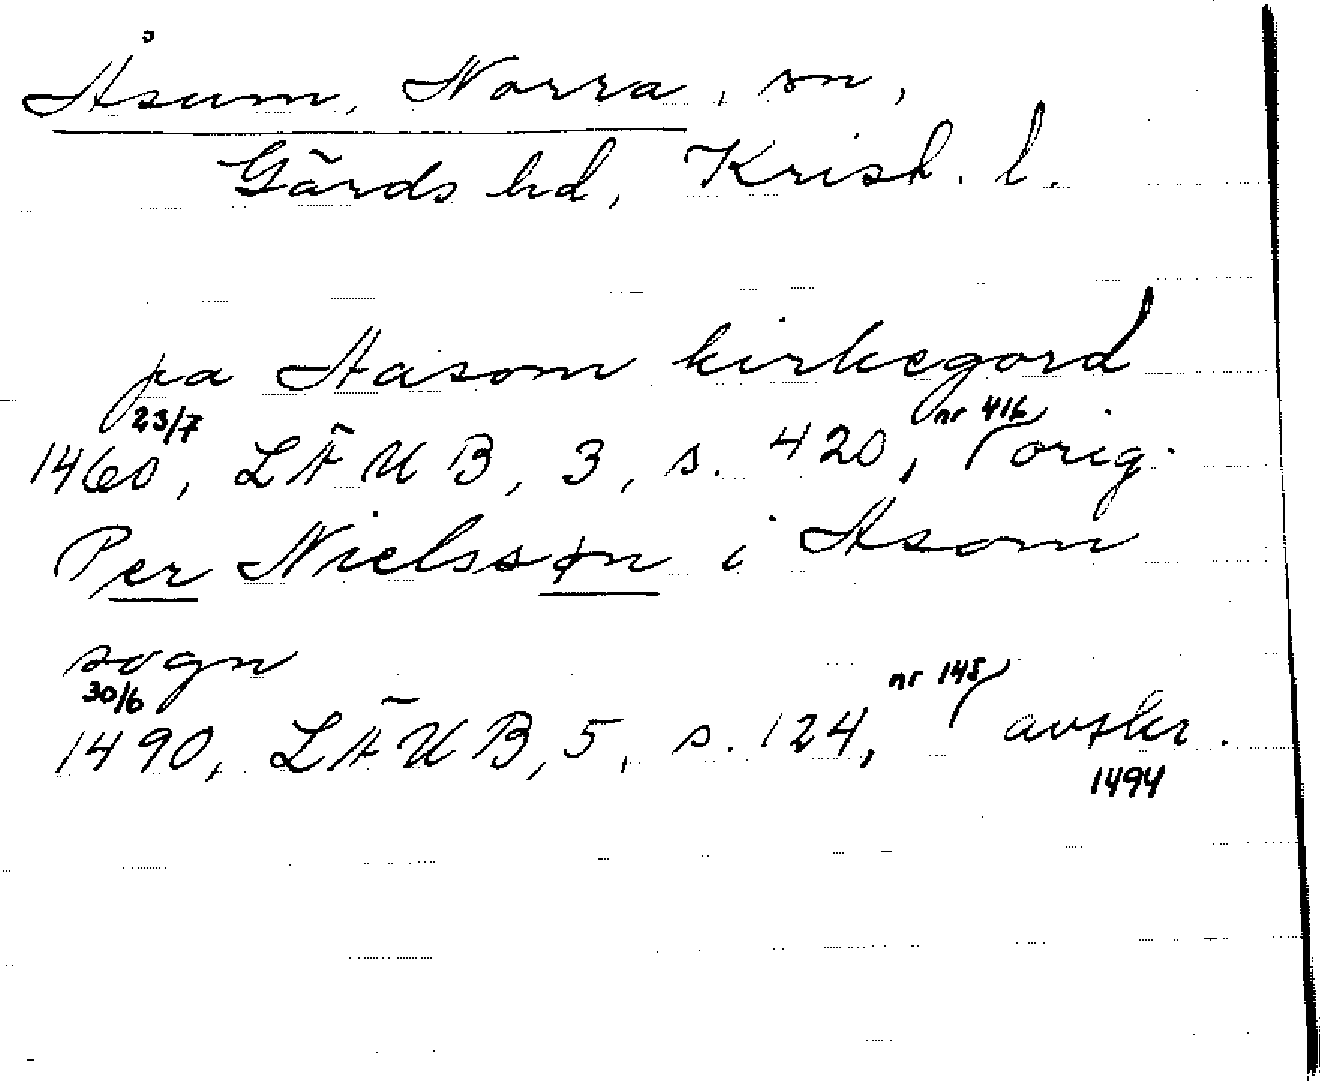 Åsum, Norra, sn,
Gärds hd, Krist. l.
pa Aasom kirkegord
23/7 nr 416
1460, LÄUB, 3, s. 420, orig.
Per Nielssøn i Asom
sogn
30/6 nr 145
1490, LÄUB, 5, s. 124, avskr.
1494